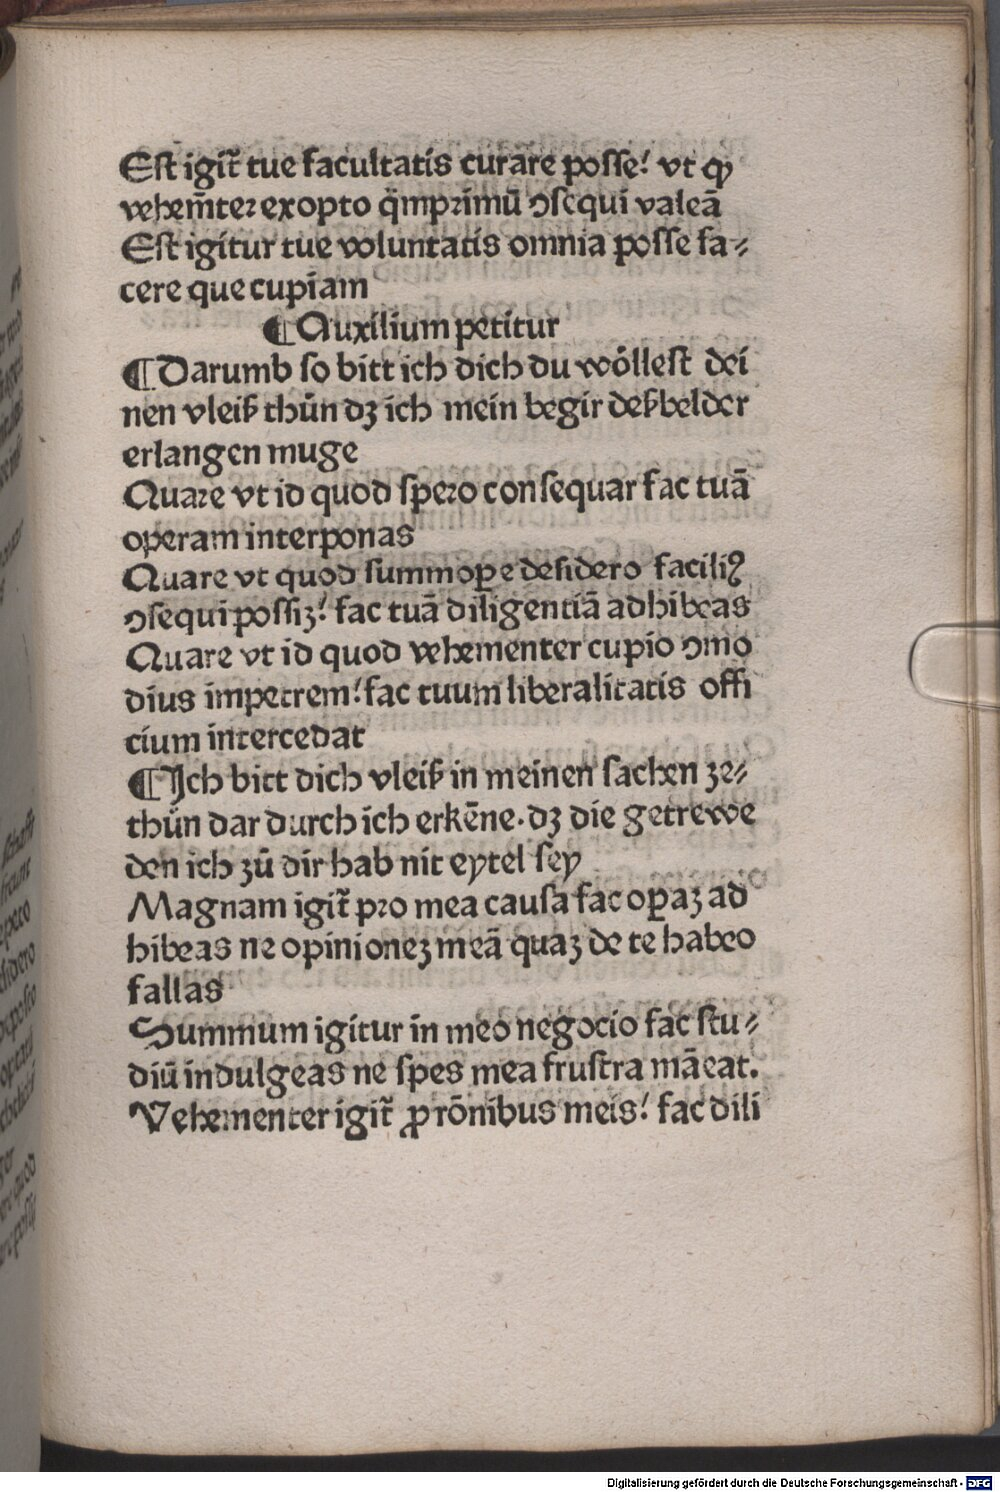 Est igit̃ tue facultatis curare posse! vt ꝙ
vehem̃ter exopto q̃mprimū ꝯsequi valeā
Est igitur tue voluntatis omnia posse fa⸗
cere que cupiam
¶Auxilium petitur
¶Darumb so bitt ich dich du woͤllest dei
nen vleiß thuͦn dz ich mein begir deßbelder
erlangen muge
Quare vt id quod spero consequar fac tuā
operam interponas
Quare vt quod summoꝑe desidero faciliꝰ
ꝯsequi possiꝫ! fac tuā diligentiā adhibeas
Quare vt id quod vehementer cupio ꝯmo
dius impetrem! fac tuum liberalitatis offi
cium intercedat
¶Ich bitt dich vleiß in meinen sachen ze⸗
thuͦn dar durch ich erkēne. dz die getrewe
den ich zuͦ dir hab nit eytel sey
Magnam igit̃ pro mea causa fac oꝑaꝫ ad
hibeas ne opinioneꝫ meā quaꝫ de te habeo
fallas
Summum igitur in meo negocio fac stu⸗
diū indulgeas ne spes mea frustra māeat.
Vehementer igit̃ ꝓ rōnibus meis! fac dili
Digitalisierung gefördert durch die Deutsche Forschungsgemeinschaft - DFG